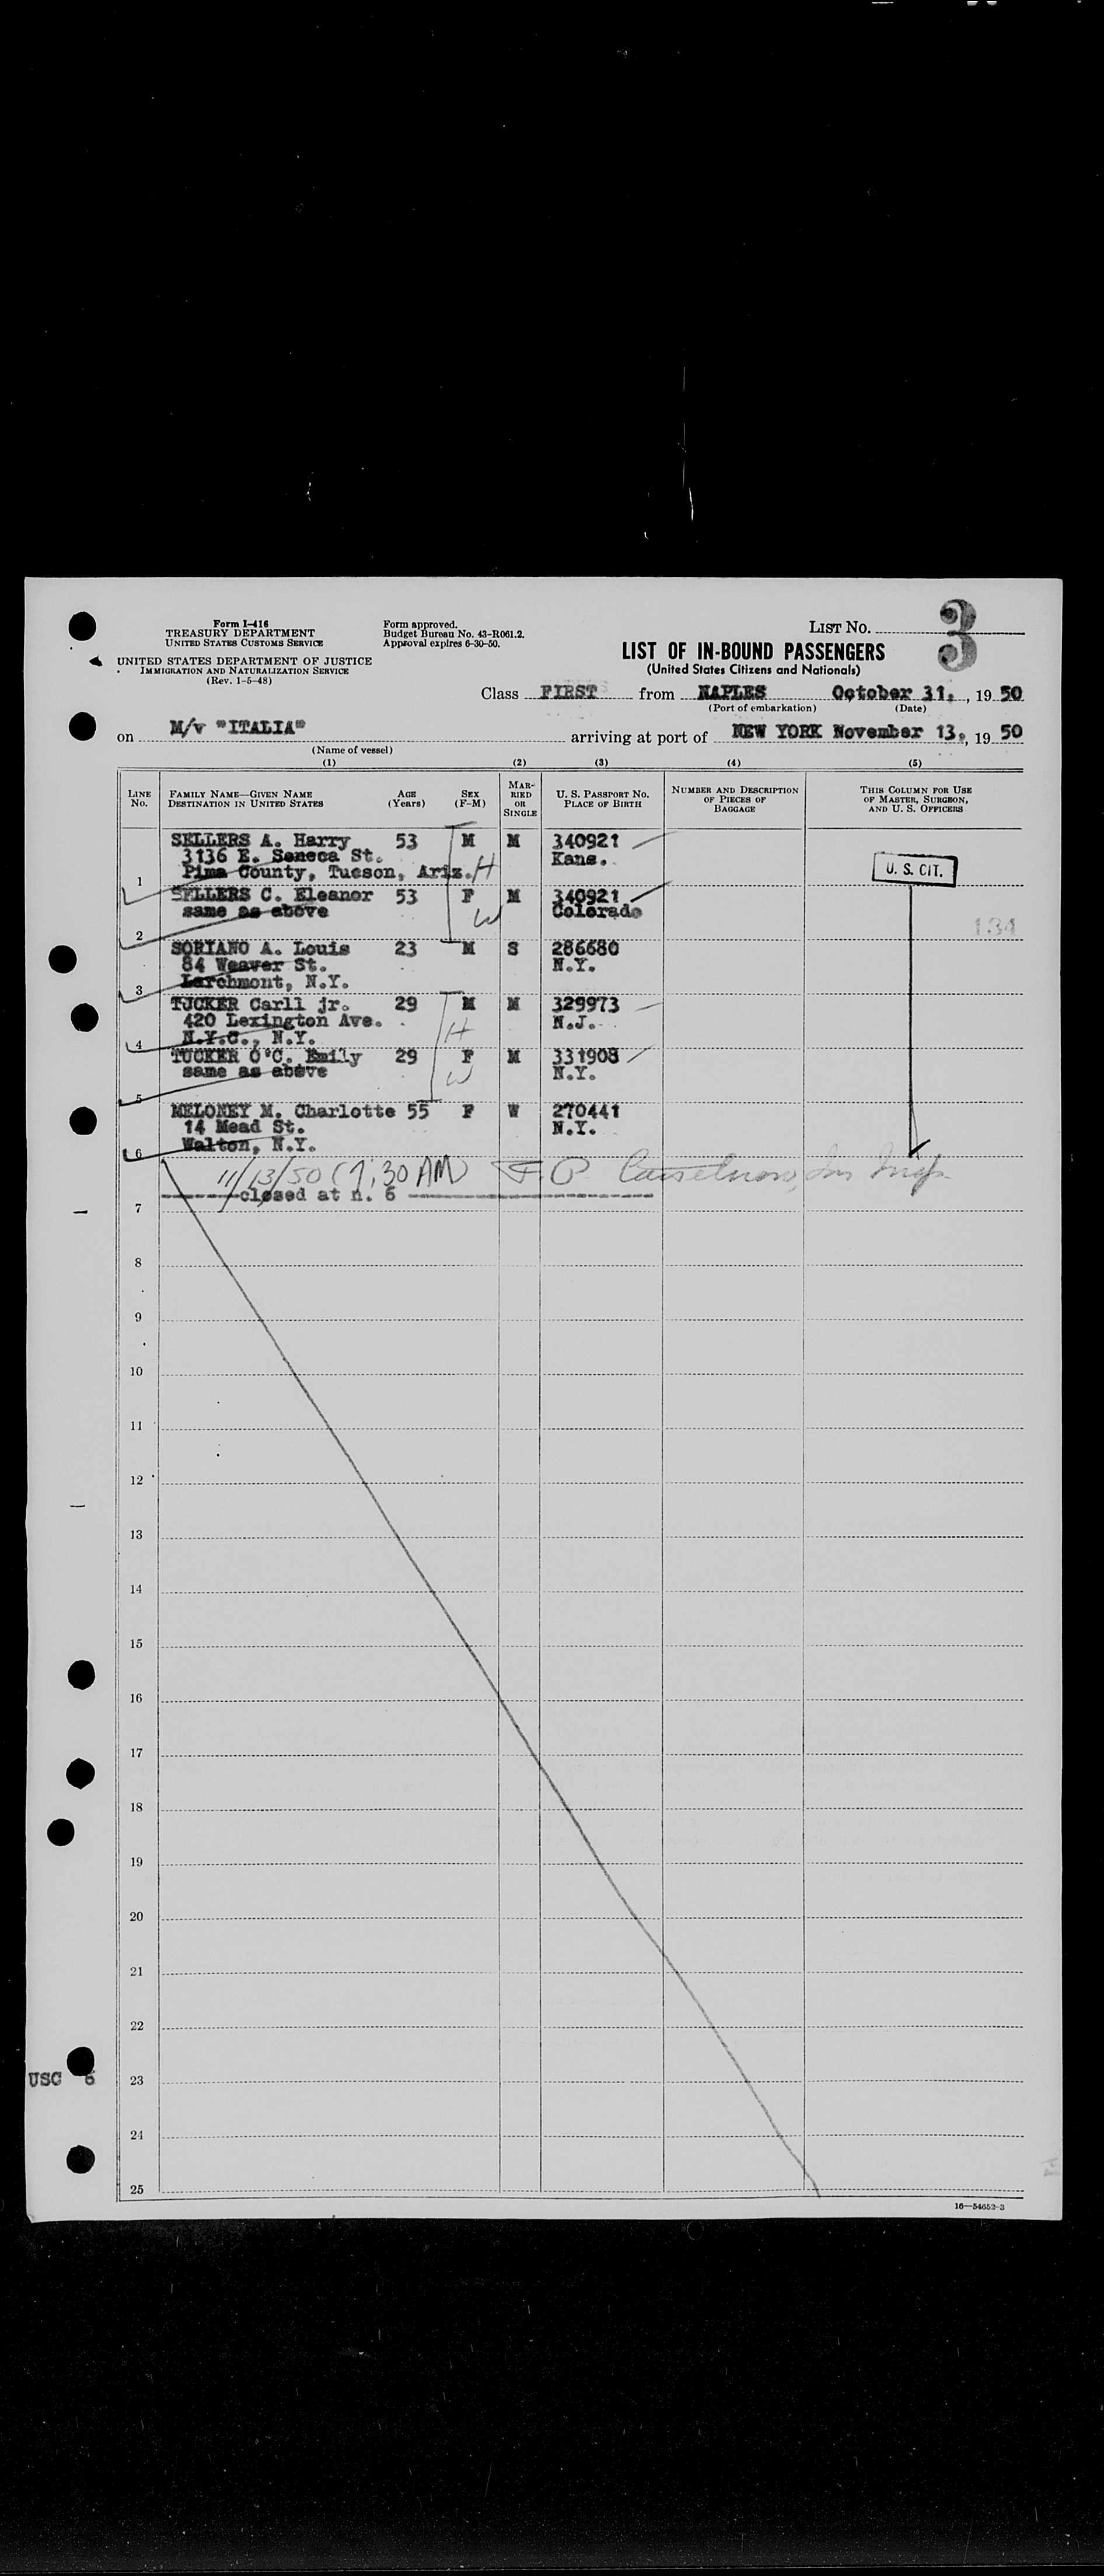 Form I-416
TREASURY DEPARTMENT
UNITED STATES CUSTOMS SERVICE
UNITED STATES DEPARTMENT OF JUSTICE
IMMIGRATION AND NATURALIZATION SERVICE
(Rev. 1-5-48)
Form approved.
Budget Bureau No. 43-R061.2.
Approval expires 6-30-50.
LIST NO. 3
LIST OF IN-BOUND PASSENGERS
(United States Citizens and Nationals)
Class FIRST from NAPLES October 31, , 19 50
(Port of embarkation) (Date)
on M/v "ITALIA" arriving at port of NEW YORK November 13, , 19 50
(Name of vessel)
(1) (2) (3) (4) (5)
LINE NO. FAMILY NAME—GIVEN NAME DESTINATION IN UNITED STATES AGE (Years) SEX (F-M) MARRIED OR SINGLE U. S. PASSPORT NO. PLACE OF BIRTH NUMBER AND DESCRIPTION OF PIECES OF BAGGAGE THIS COLUMN FOR USE OF MASTER, SURGEON, AND U. S. OFFICERS
SELLERS A. Harry 53 M M 340921
3136 E. Seneca St. Kans.
1 Pima County, Tucson, Ariz. H
U. S. CIT.
SELLERS C. Eleanor 53 F M 340921
same as above W Colorado
2
134
SORIANO A. Louis 23 M S 286680
84 Weaver St. N.Y.
3 Larchmont, N.Y.
TUCKER Carll jr. 29 M M 329973
420 Lexington Ave. H N.J.
4 N.Y.C., N.Y.
TUCKER O'C. Emily 29 F M 331908
same as above W N.Y.
5
MELONEY M. Charlotte 55 F W 270441
14 Mead St. N.Y.
6 Walton, N.Y.
11/13/50 (7:30 AM) F.P.
closed at n. 6
7
8
9
10
11
12
13
14
15
16
17
18
19
20
21
22
USC 6
23
24
25
16—54652-3